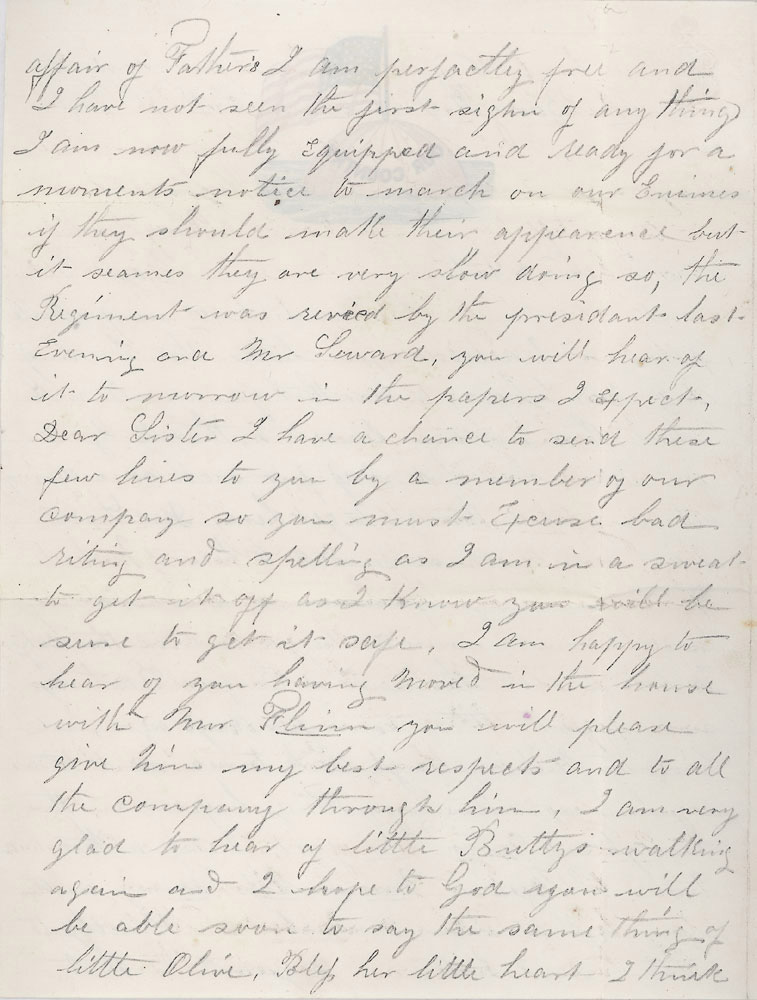 affair of Father's I am perfactley free and
I have not seen the first sighn of any thing
I am now fully Equipped and ready for a
moments notice to march on our Enimes
if they should make their appearence but
it seames they are very slow doing so, the
Regiment was by the presidant last
Evening and Mr Seward, you will hear of
it to morrow in the papers I Expect,
Dear Sister I have a chance to send these
few lines to you by a member of our
company so you must Excuse bad
riting and spelling as I am in a sweat
to get it off as I Know you will be
sure to get it safe, I am happy to
hear of you having moved in the house
with Mr Flinn you will please
give him my best respects and to all
the company through him, I am very
glad to hear of little walking
again and I hope to God you will
be able soon to say the same thing of
little Olive, Bless her little heart I think